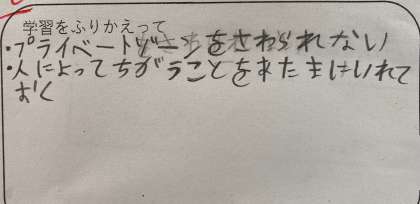 学習をふりかえって
・プライベートゾーンをさわられない
・人によってちがうことをあたまにいれて
おく